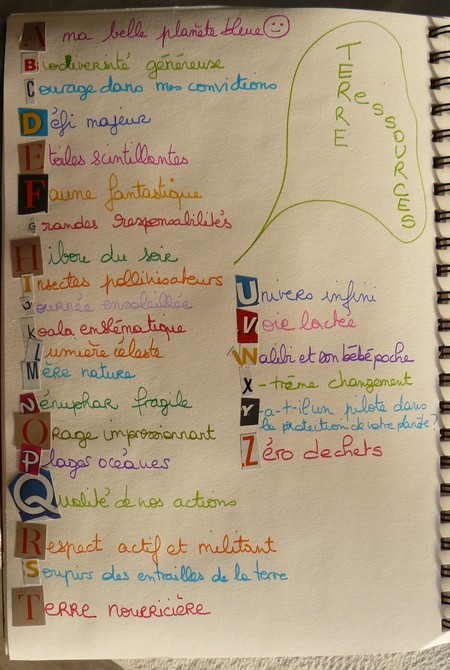 A ma belle planète bleue
Biodiversité généreuse
Courage dans mes convictions
Défi majeur
Etoiles scintillantes
Faune fantastique
Grandes responsabilités
Hibou du soir
Insectes pollinisateurs
Journée ensoleillée
Koala emblématique
Lumière céleste
Mère nature
Nénuphar fragile
Orage impressionnant
Plages océanes
Qualité de nos actions
Respect actif et militant
Soupirs des entrailles de la terre
Terre nourricière
TERRE
RESSOURCES
Univers infini
Voie lactée
Walibi et son bébé poche
X-trême changement
Y-a-t-il un pilote dans
la protection de votre planète ?
Zéro dechets